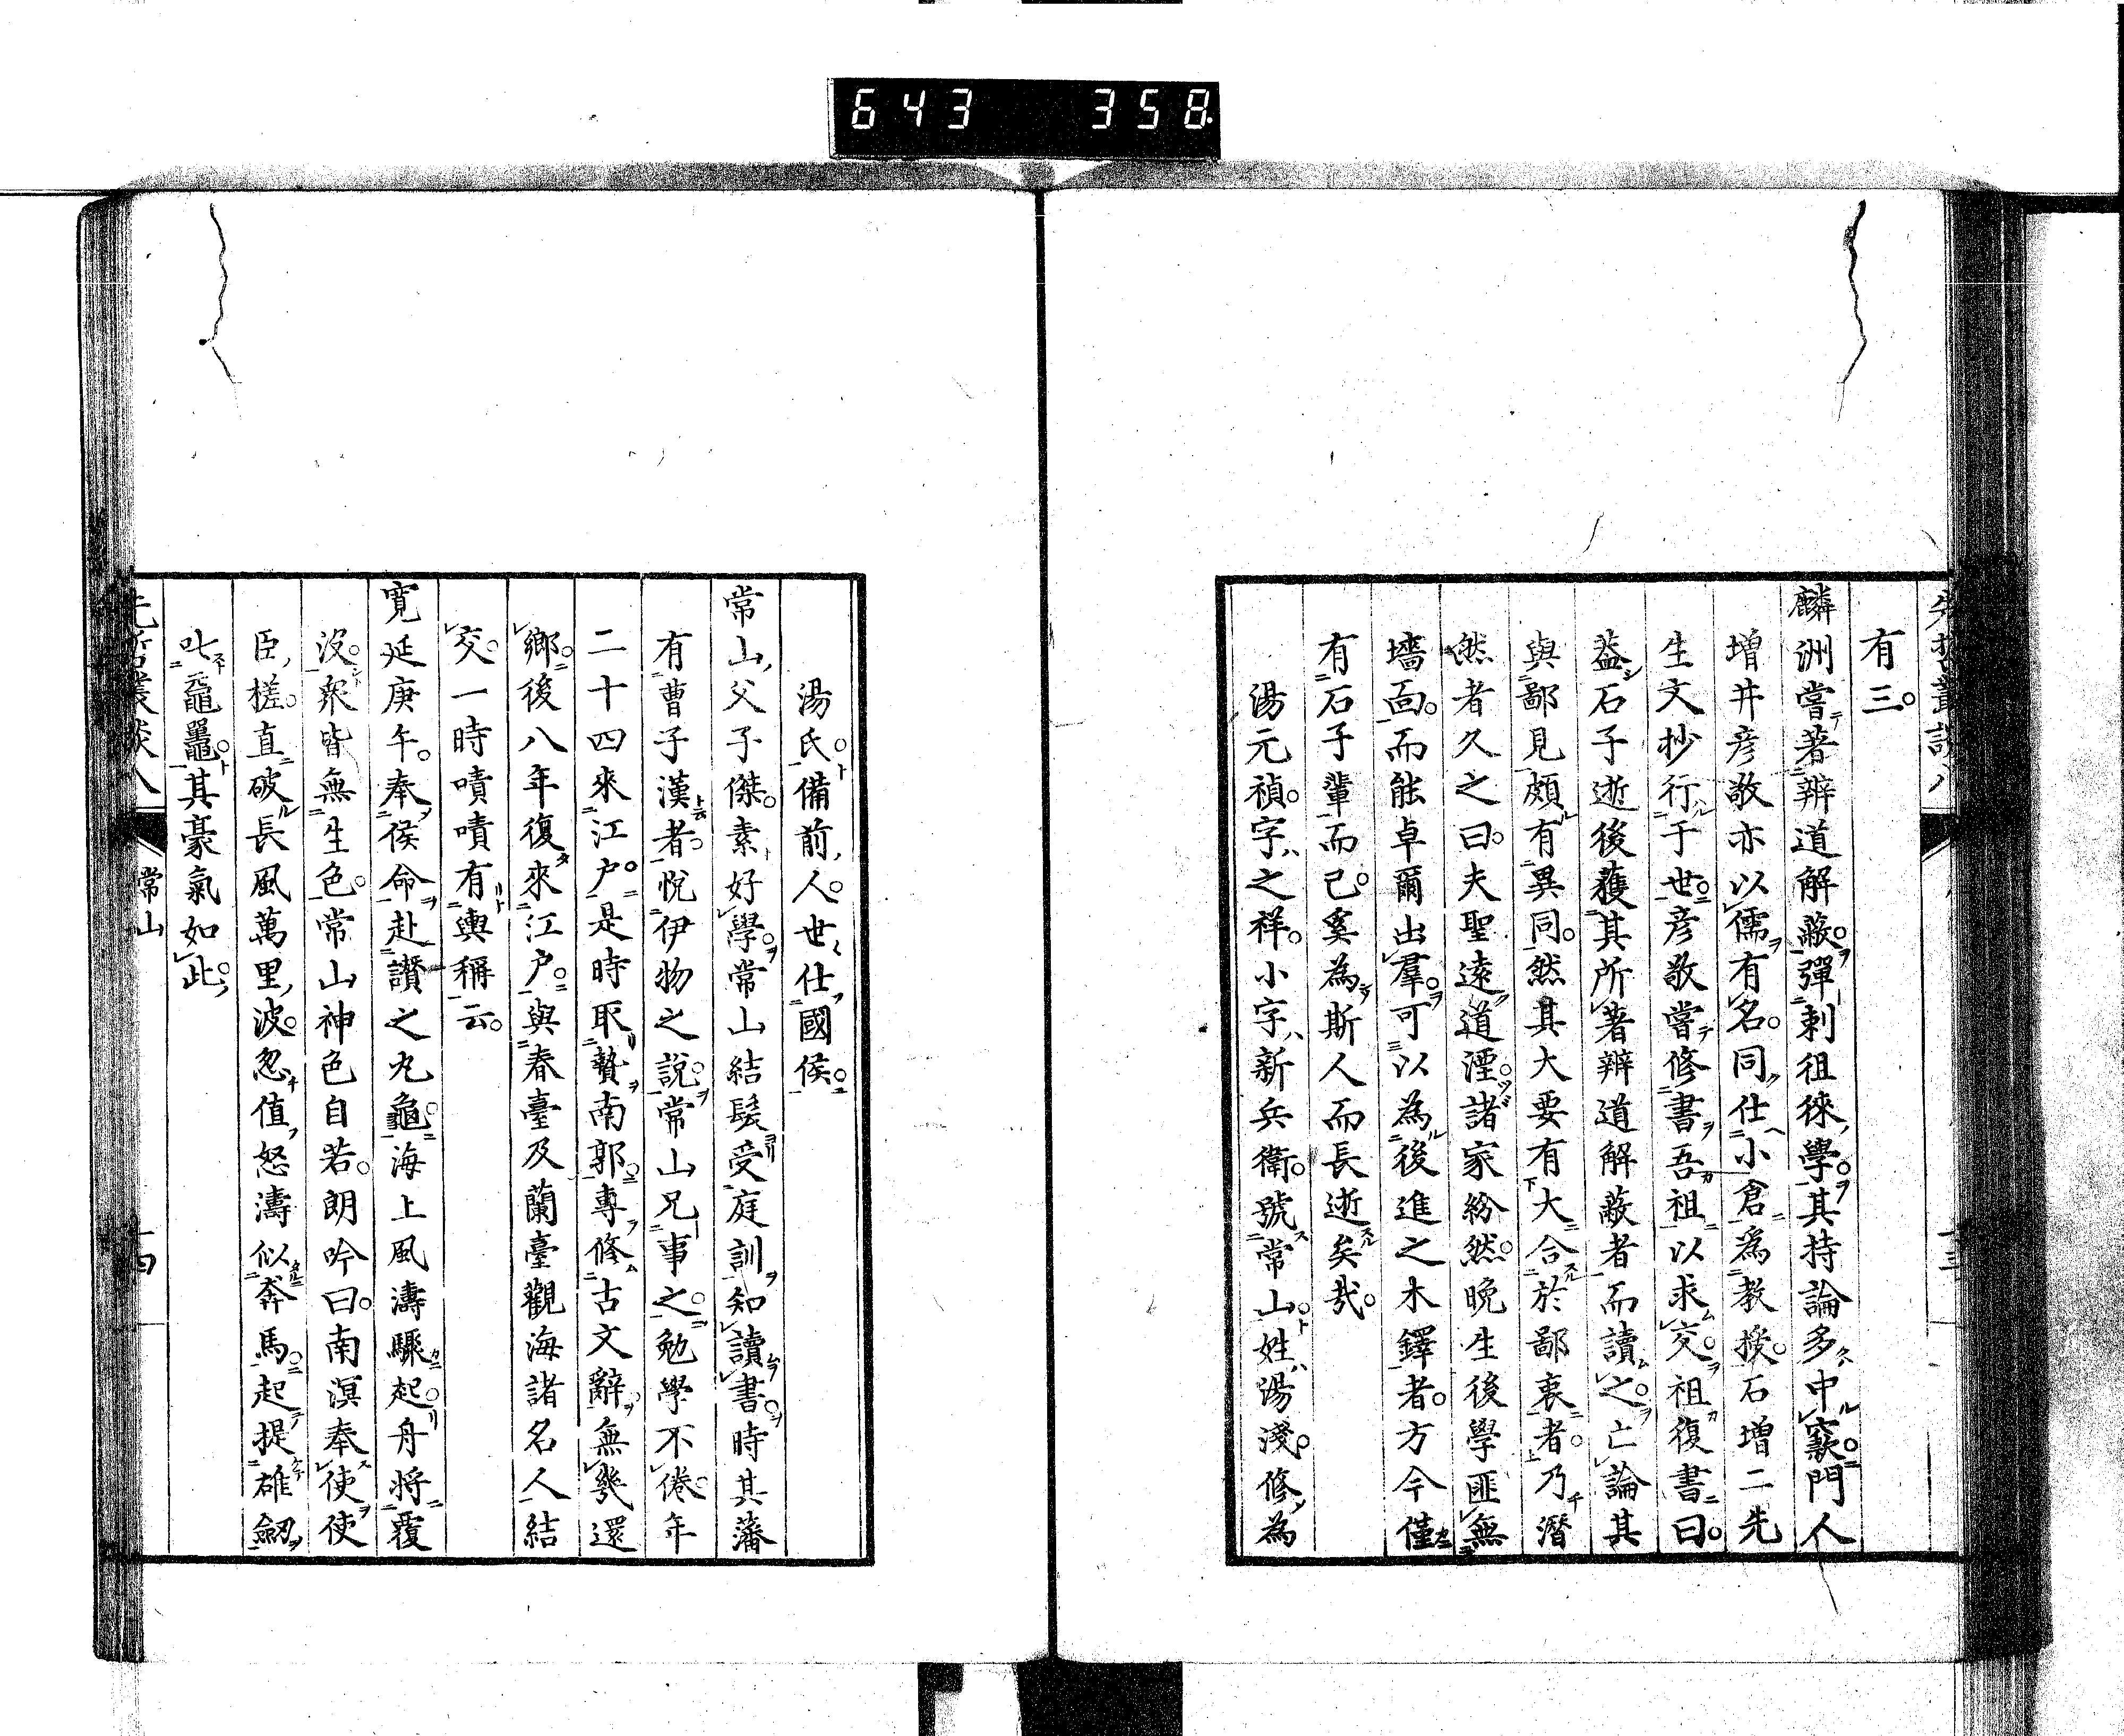 643 358
有三。
麟洲嘗著辨道解蔽。彈刺徂徠學。其持論多中窾。門人
增井彦敬亦以儒有名。同仕小倉為教授。石增二先
生文抄行于世。彦敬嘗修書吾祖以求交。祖復書曰。
益石子逝後獲其所著辨道解蔽者而讀之。亡論其
與鄙見頗有異同。然其大要有大合於鄙衷者。乃潛
然者久之曰。夫聖遠道湮。諸家紛然。晚生後學匪無
墻面。而能卓爾出羣。可以為後進之木鐸者。方今僅
有石子輩而已。奚為斯人而長逝矣哉。
湯元禎。字之祥。小字新兵衛。號常山。姓湯淺。修為
湯氏。備前人。世仕國侯。
常山父子傑。素好學。常山結髮受庭訓知讀書。時其藩
有曹子漢者。悅伊物之說。常山兄事之。勉學不倦。年
二十四來江戶。是時取贄南郭。專修古文辭。無幾還
鄉。後八年復來江戶。與春臺及蘭臺觀海諸名人結
交。一時嘖嘖有輿稱云。
寛延庚午。奉侯命赴讚之丸龜。海上風濤驟起。舟將覆
沒。衆皆無生色。常山神色自若。朗吟曰。南溟奉使使
臣槎。直破長風萬里波。忽值怒濤似奔馬。起提雄劔
叱黿鼉。其豪氣如此。
常山